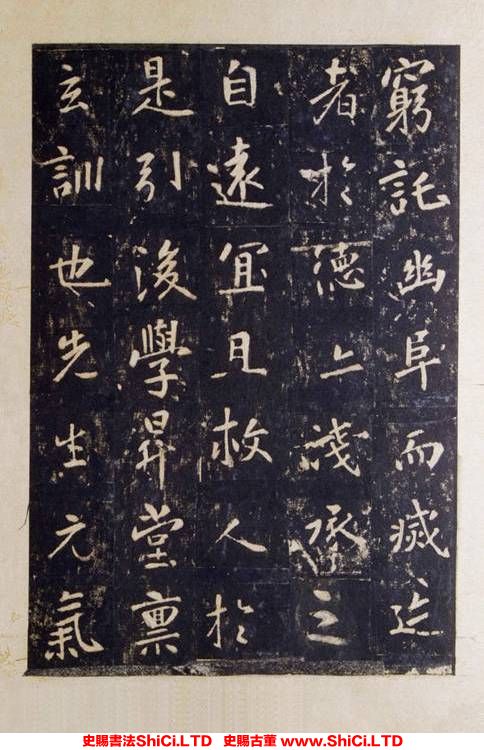 窮託幽阜而滅迹
者於德上淺承之
自遠宜且救人於
是引後學昇堂稟
玄訓也先生元氣
史賜書法ShiCi.LTD 史賜古董 www.ShiCi.LTD